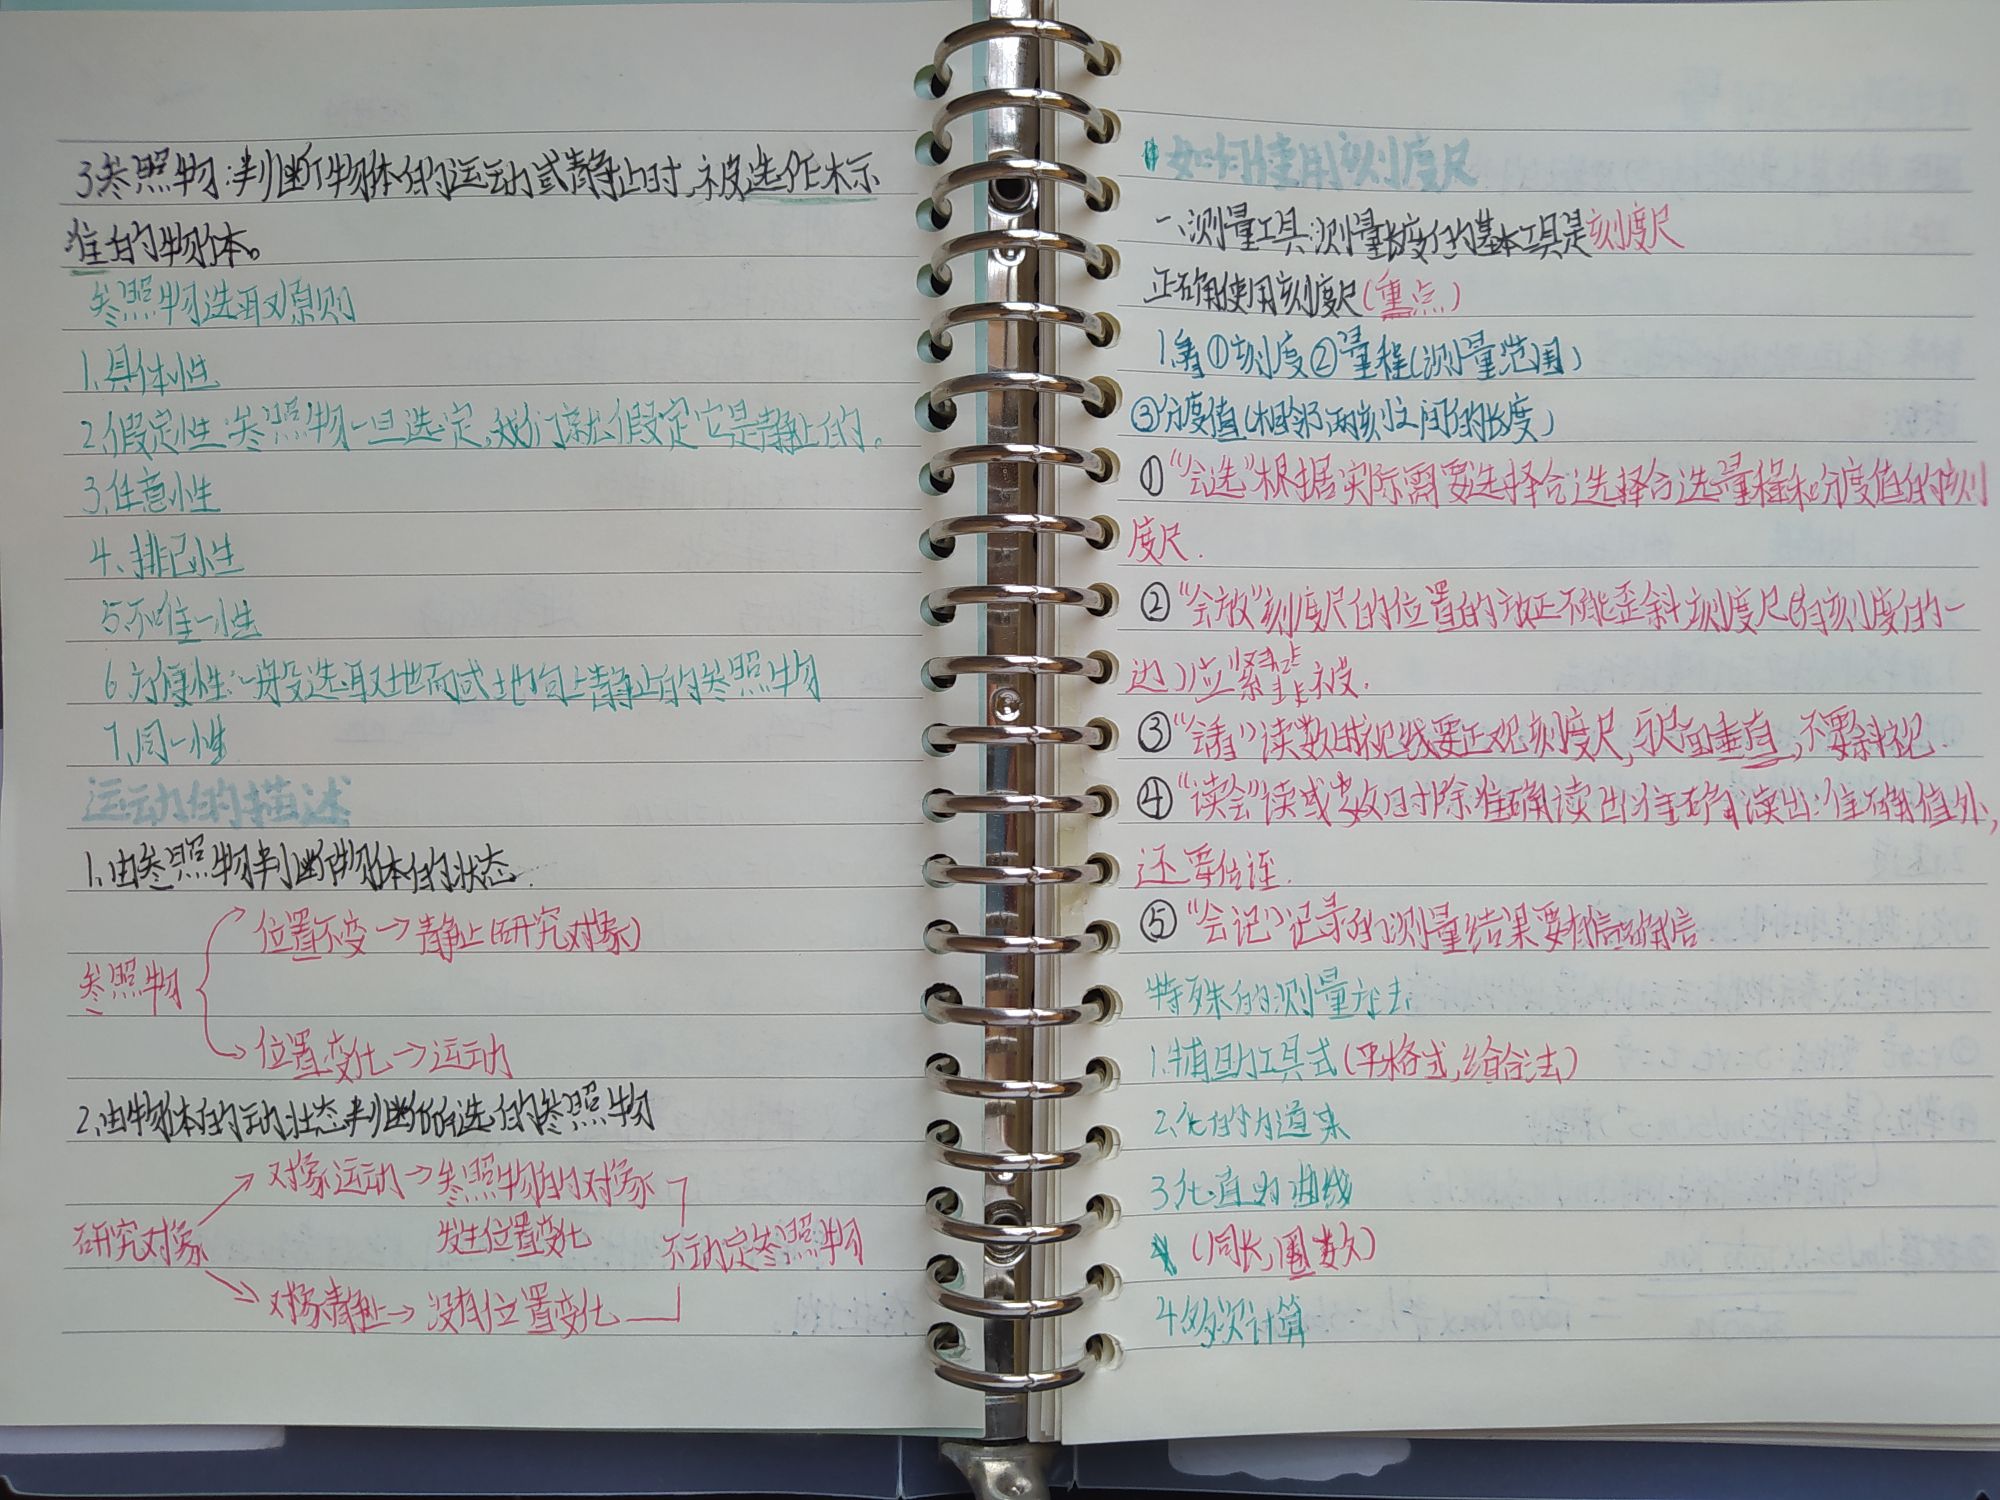 3.参照物:判断物体的运动或静止时,被选作标
准的物体。
参照物选取原则
1.具体性
2.假定性:参照物一旦选定,我们就假定它是静止的。
3.任意性
4、排己性
5.不唯一性
6.方便性:一般选取地面或地面上静止的参照物
7.同一性
运动的描述
1.由参照物判断物体的状态.
位置不变→静止(研究对象)
参照物
位置变化→运动
2.由物体的动状态判断所选的参照物
对象运动→参照物的对象
发生位置变化
研究对象
不动定参照物
对象静止→没有位置变化
如何使用刻度尺
一.测量工具:测量长度的基本工具是刻度尺
正确使用刻度尺(重点)
1.看①刻度②量程(测量范围)
③分度值(相邻两刻之间的长度)
①“会选”根据实际需要选择合选择合选量程和分度值的刻
度尺.
②“会放”刻度尺的位置的放正不能歪斜刻度尺(有刻度的一
边)应紧靠被.
③“会看”读数时视线要正观刻度尺,与尺面垂直,不要斜视.
④“读会”读或数时除准确读出准确读出:准确值外,
还要估
⑤“会记”记录的测量结果要
特殊的测量方法.
1.辅助工具式(平格式,给合法)
2.化的为直来
3化直为曲线
(周长,圈数)
4多次计算